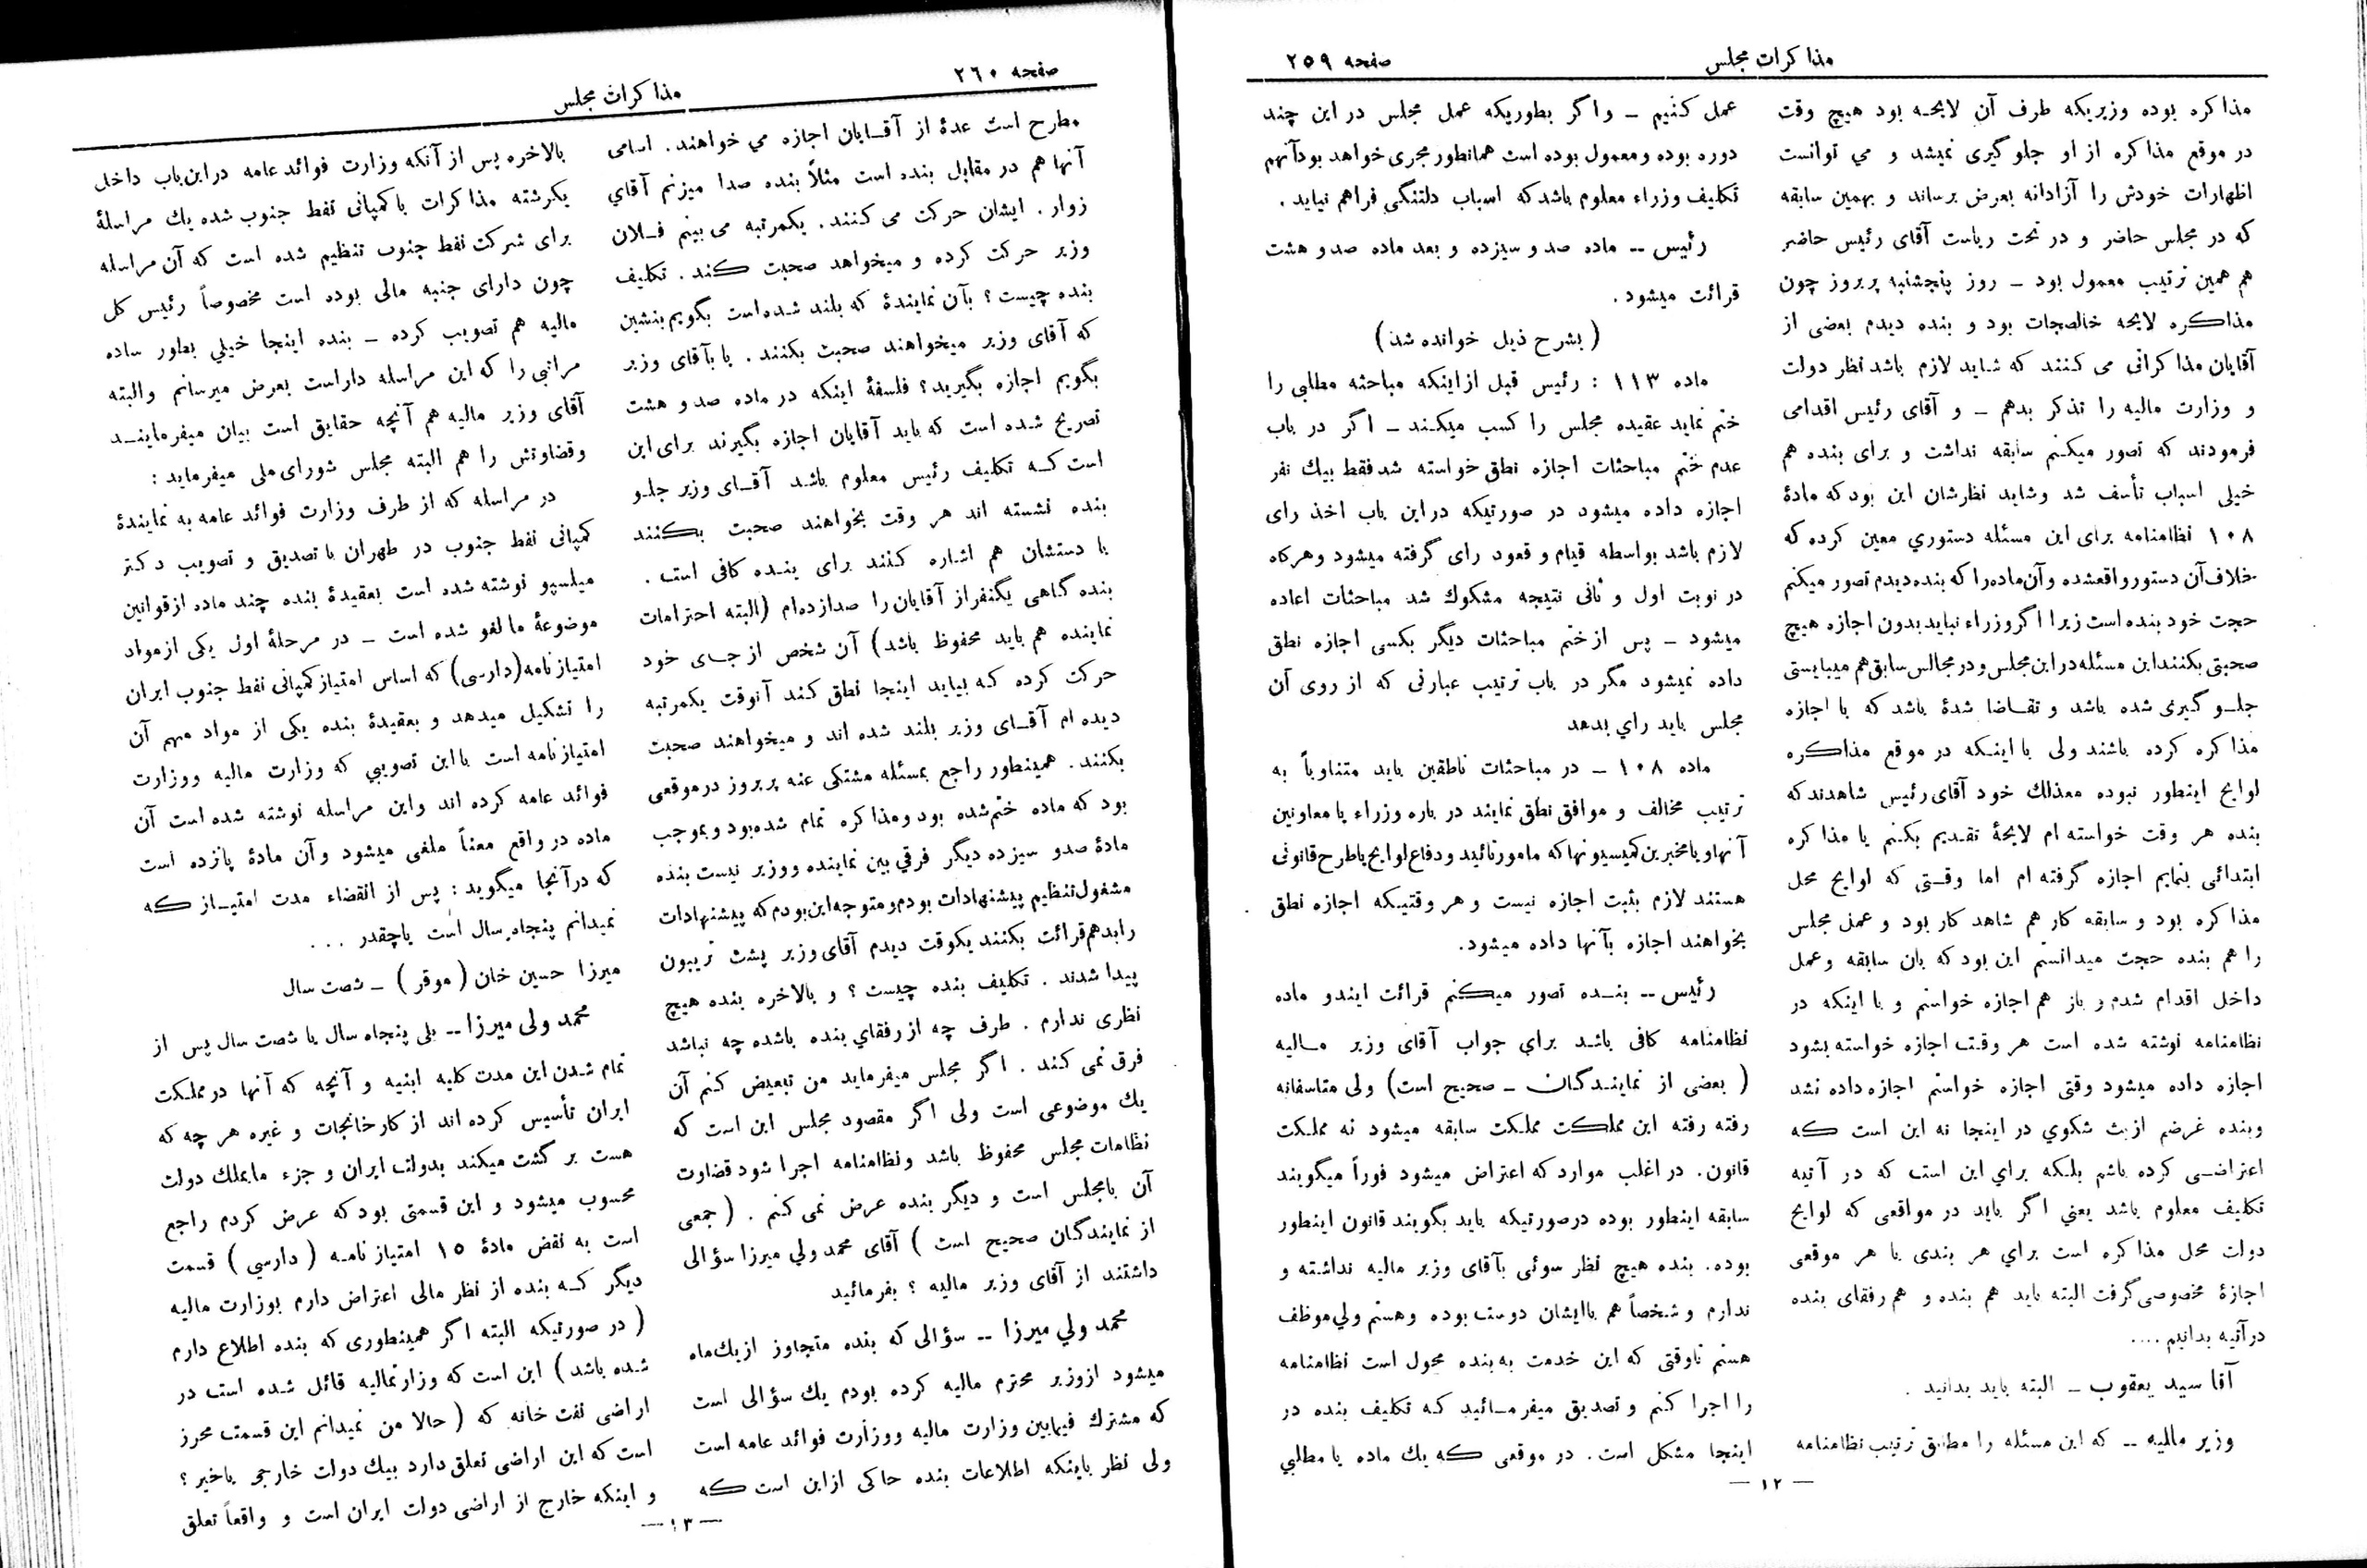 مذاکرات مجلس
صفحه ۲۵۹
مذاکره بوده وزیریکه طرف آن لایحه بود هیچ وقت
در موقع مذاکره از او جلوگیری نمیشد و می توانست
اظهارات خودش را آزادانه بعرض برساند و بهمین سابقه
که در مجلس حاضر و در تحت ریاست آقای رئیس حاضر
هم همین ترتیب معمول بود ــ روز پنجشنبه پریروز چون
مذاکره لایحه خالصجات بود و بنده دیدم بعضی از
آقایان مذاکراتی می کنند که شاید لازم باشد نظر دولت
و وزارت مالیه را تذکر بدهم ــ و آقای رئیس اقدامی
فرمودند که تصور میکنم سابقه نداشت و برای بنده هم
خیلی اسباب تأسف شد وشاید نظرشان این بود که مادهٔ
۱۰۸ نظامنامه برای این مسئله دستوری معین کرده که
خلاف آن دستور واقعشده و آن ماده را که بنده دیدم تصور میکنم
حجت خود بنده است زیرا اگر وزراء نباید بدون اجازه هیچ
صحبتی بکنند این مسئله در این مجلس و در مجالس سابق هم میبایستی
جلوگیری شده باشد و تقاضا شدهٔ باشد که با اجازه
مذاکره کرده باشند ولی با اینکه در موقع مذاکره
لوایح اینطور نبوده معذلك خود آقای رئیس شاهدند که
بنده هر وقت خواسته ام لایحهٔ تقدیم بکنم یا مذاکره
ابتدائی بنمایم اجازه گرفته ام اما وقتی که لوایح محل
مذاکره بود و سابقه کار هم شاهد کار بود و عمل مجلس
را هم بنده حجت میدانستم این بود که بان سابقه وعمل
داخل اقدام شدم و باز هم اجازه خواستم و با اینکه در
نظامنامه نوشته شده است هر وقت اجازه خواسته بشود
اجازه داده میشود وقتی اجازه خواستم اجازه داده نشد
وبنده غرضم از بث شکوی در اینجا نه این است که
اعتراضی کرده باشم بلکه برای این است که در آتیه
تکلیف معلوم باشد یعنی اگر باید در مواقعی که لوایح
دولت محل مذاکره است برای هر بندی با هر موقعی
اجازهٔ مخصوصی گرفت البته باید هم بنده و هم رفقای بنده
در آتیه بدانیم....
آقا سید یعقوب ــ البته باید بدانید .
وزیر مالیه ــ که این مسئله را مطابق ترتیب نظامنامه
عمل کنیم ــ واگر بطوریکه عمل مجلس در این چند
دوره بوده ومعمول بوده است همانطور مجری خواهد بودآنهم
تکلیف وزراء معلوم باشد که اسباب دلتنگی فراهم نیاید .
رئیس ــ ماده صد و سیزده و بعد ماده صد و هشت
قرائت میشود.
(بشرح ذیل خوانده شد)
ماده ۱۱۳ : رئیس قبل از اینکه مباحثه مطلبی را
ختم نماید عقیده مجلس را کسب میکند ــ اگر در باب
عدم ختم مباحثات اجازه نطق خواسته شد فقط بیك نفر
اجازه داده میشود در صورتیکه در این باب اخذ رای
لازم باشد بواسطه قیام و قعود رای گرفته میشود وهرگاه
در نوبت اول و ثانی نتیجه مشکوك شد مباحثات اعاده
میشود ــ پس از ختم مباحثات دیگر بکسی اجازه نطق
داده نمیشود مگر در باب ترتیب عبارتی که از روی آن
مجلس باید رای بدهد
ماده ۱۰۸ ــ در مباحثات ناطقین باید متناوباً به
ترتیب مخالف و موافق نطق نمایند در باره وزراء یا معاونین
آنها و یا مخبرین کمیسیونها که مامور تائید و دفاع لوایح یا طرح قانونی
هستند لازم بثبت اجازه نیست و هر وقتیکه اجازه نطق
بخواهند اجازه بآنها داده میشود.
رئیس ــ بنده تصور میکنم قرائت ایندو ماده
نظامنامه کافی باشد برای جواب آقای وزیر مالیه
( بعضی از نمایندگان ــ صحیح است) ولی متاسفانه
رفته رفته این مملکت مملکت سابقه میشود نه مملکت
قانون. در اغلب موارد که اعتراض میشود فوراً میگویند
سابقه اینطور بوده درصورتیکه باید بگویند قانون اینطور
بوده. بنده هیچ نظر سوئی بآقای وزیر مالیه نداشته و
ندارم و شخصاً هم باایشان دوست بوده وهستم ولی موظف
هستم تاوقتی که این خدمت به بنده محول است نظامنامه
را اجرا کنم و تصدیق میفرمائید که تکلیف بنده در
اینجا مشکل است. در موقعی که یك ماده یا مطلبی
— ۱۲ —
صفحه ۲۶۰
مذاکرات مجلس
مطرح است عدهٔ از آقایان اجازه می خواهند. اسامی
آنها هم در مقابل بنده است مثلاً بنده صدا میزنم آقای
زوار. ایشان حرکت می کنند. یکمرتبه می بینم فلان
وزیر حرکت کرده و میخواهد صحبت کند. تکلیف
بنده چیست ؟ بآن نمایندهٔ که بلند شده است بگویم بنشین
که آقای وزیر میخواهند صحبت بکنند. یا بآقای وزیر
بگویم اجازه بگیرید؟ فلسفهٔ اینکه در ماده صد و هشت
تصریح شده است که باید آقایان اجازه بگیرند برای این
است که تکلیف رئیس معلوم باشد آقای وزیر جلو
بنده نشسته اند هر وقت بخواهند صحبت بکنند
با دستشان هم اشاره کنند برای بنده کافی است.
بنده گاهی یکنفر از آقایان را صدا زده ام (البته احترامات
نماینده هم باید محفوظ باشد) آن شخص از جای خود
حرکت کرده که بیاید اینجا نطق کند آنوقت یکمرتبه
دیده ام آقای وزیر بلند شده اند و میخواهند صحبت
بکنند. همینطور راجع بمسئله مشتکی عنه پریروز در موقعی
بود که ماده ختم شده بود ومذاکره تمام شده بود وبموجب
مادهٔ صدو سیزده دیگر فرقی بین نماینده و وزیر نیست بنده
مشغول تنظیم پیشنهادات بودم و متوجه این بودم که پیشنهادات
رابدهم قرائت بکنند یکوقت دیدم آقای وزیر پشت تریبون
پیدا شدند. تکلیف بنده چیست ؟ و بالاخره بنده هیچ
نظری ندارم. طرف چه از رفقای بنده باشده چه نباشد
فرق نمی کند. اگر مجلس میفرماید من تبعیض کنم آن
یك موضوعی است ولی اگر مقصود مجلس این است که
نظامات مجلس محفوظ باشد ونظامنامه اجرا شود قضاوت
آن بامجلس است و دیگر بنده عرض نمی کنم. ( جمعی
از نمایندگان صحیح است ) آقای محمد ولی میرزا سؤالی
داشتند از آقای وزیر مالیه ؟ بفرمائید
محمد ولی میرزا ــ سؤالی که بنده متجاوز از یك ماه
میشود ازوزیر محترم مالیه کرده بودم یك سؤالی است
که مشترك فیمابین وزارت مالیه ووزارت فوائد عامه است
ولی نظر باینکه اطلاعات بنده حاکی ازاین است که
بالاخره پس از آنکه وزارت فوائد عامه در این باب داخل
یکرشته مذاکرات با کمپانی نفط جنوب شده یك مراسلهٔ
برای شرکت نفط جنوب تنظیم شده است که آن مراسله
چون دارای جنبه مالی بوده است مخصوصاً رئیس کل
مالیه هم تصویب کرده ــ بنده اینجا خیلی بطور ساده
مراتبی را که این مراسله داراست بعرض میرسانم والبته
آقای وزیر مالیه هم آنچه حقایق است بیان میفرمایند
وقضاوتش را هم البته مجلس شورای ملی میفرماید :
در مراسله که از طرف وزارت فوائد عامه به نمایندهٔ
کمپانی نفط جنوب در طهران با تصدیق و تصویب دکتر
میلسپو نوشته شده است بعقیدهٔ بنده چند ماده از قوانین
موضوعهٔ ما لغو شده است ــ در مرحلهٔ اول یکی از مواد
امتیاز نامه (دارسی) که اساس امتیاز کمپانی نفط جنوب ایران
را تشکیل میدهد و بعقیدهٔ بنده یکی از مواد مهم آن
امتیاز نامه است با این تصویبی که وزارت مالیه ووزارت
فوائد عامه کرده اند واین مراسله نوشته شده است آن
ماده در واقع معناً ملغی میشود وآن مادهٔ پانزده است
که درآنجا میگوید: پس از انقضاء مدت امتیاز که
نمیدانم پنجاه سال است یاچقدر ...
میرزا حسین خان (موقر) ــ شصت سال
محمد ولی میرزا ــ بلی پنجاه سال یا شصت سال پس از
تمام شدن این مدت کلیه ابنیه و آنچه که آنها در مملکت
ایران تأسیس کرده اند از کارخانجات و غیره هر چه که
هست بر گشت میکند بدولت ایران و جزء مایملك دولت
محسوب میشود و این قسمتی بود که عرض کردم راجع
است به نقض مادهٔ ۱۵ امتیاز نامه ( دارسی ) قسمت
دیگر که بنده از نظر مالی اعتراض دارم بوزارت مالیه
( در صورتیکه البته اگر همینطوری که بنده اطلاع دارم
شده باشد) این است که وزارتمالیه قائل شده است در
اراضی نفت خانه که ( حالا من نمیدانم این قسمت محرز
است که این اراضی تعلق دارد بیك دولت خارجی یاخیر ؟
و اینکه خارج از اراضی دولت ایران است و واقعاً تعلق
— ۱۳ —